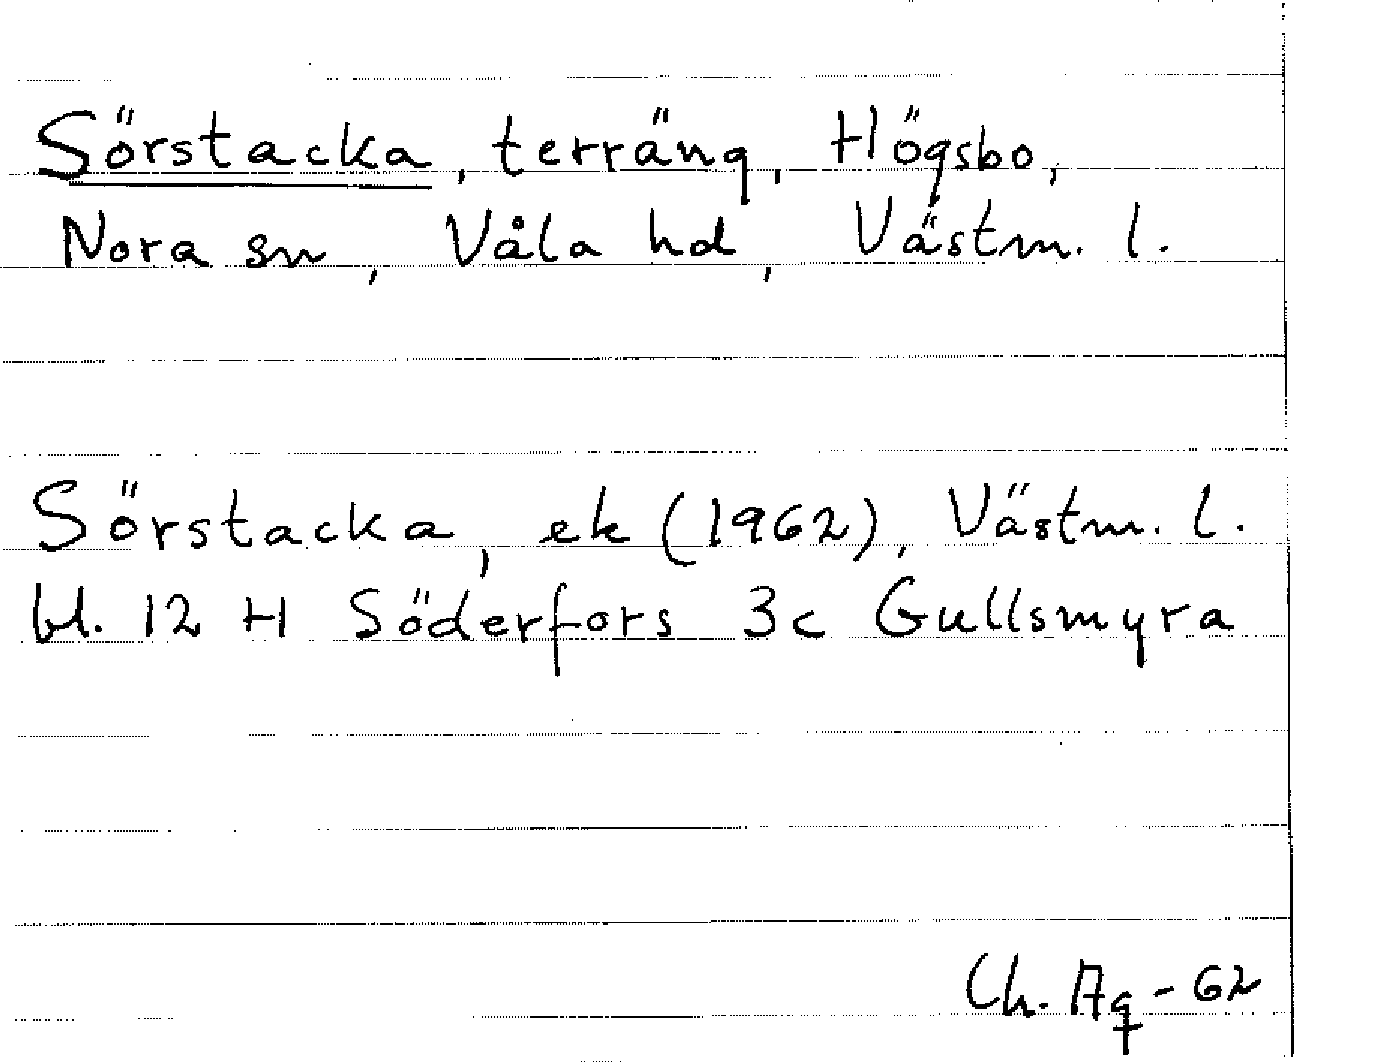 Sörstacka, terräng, Högsbo,
Nora sn, Våla hd, Västm. l.
Sörstacka, ek (1962), Västm. l.
bl. 12 H Söderfors 3c Gullsmyra
Ch. Ag - 62